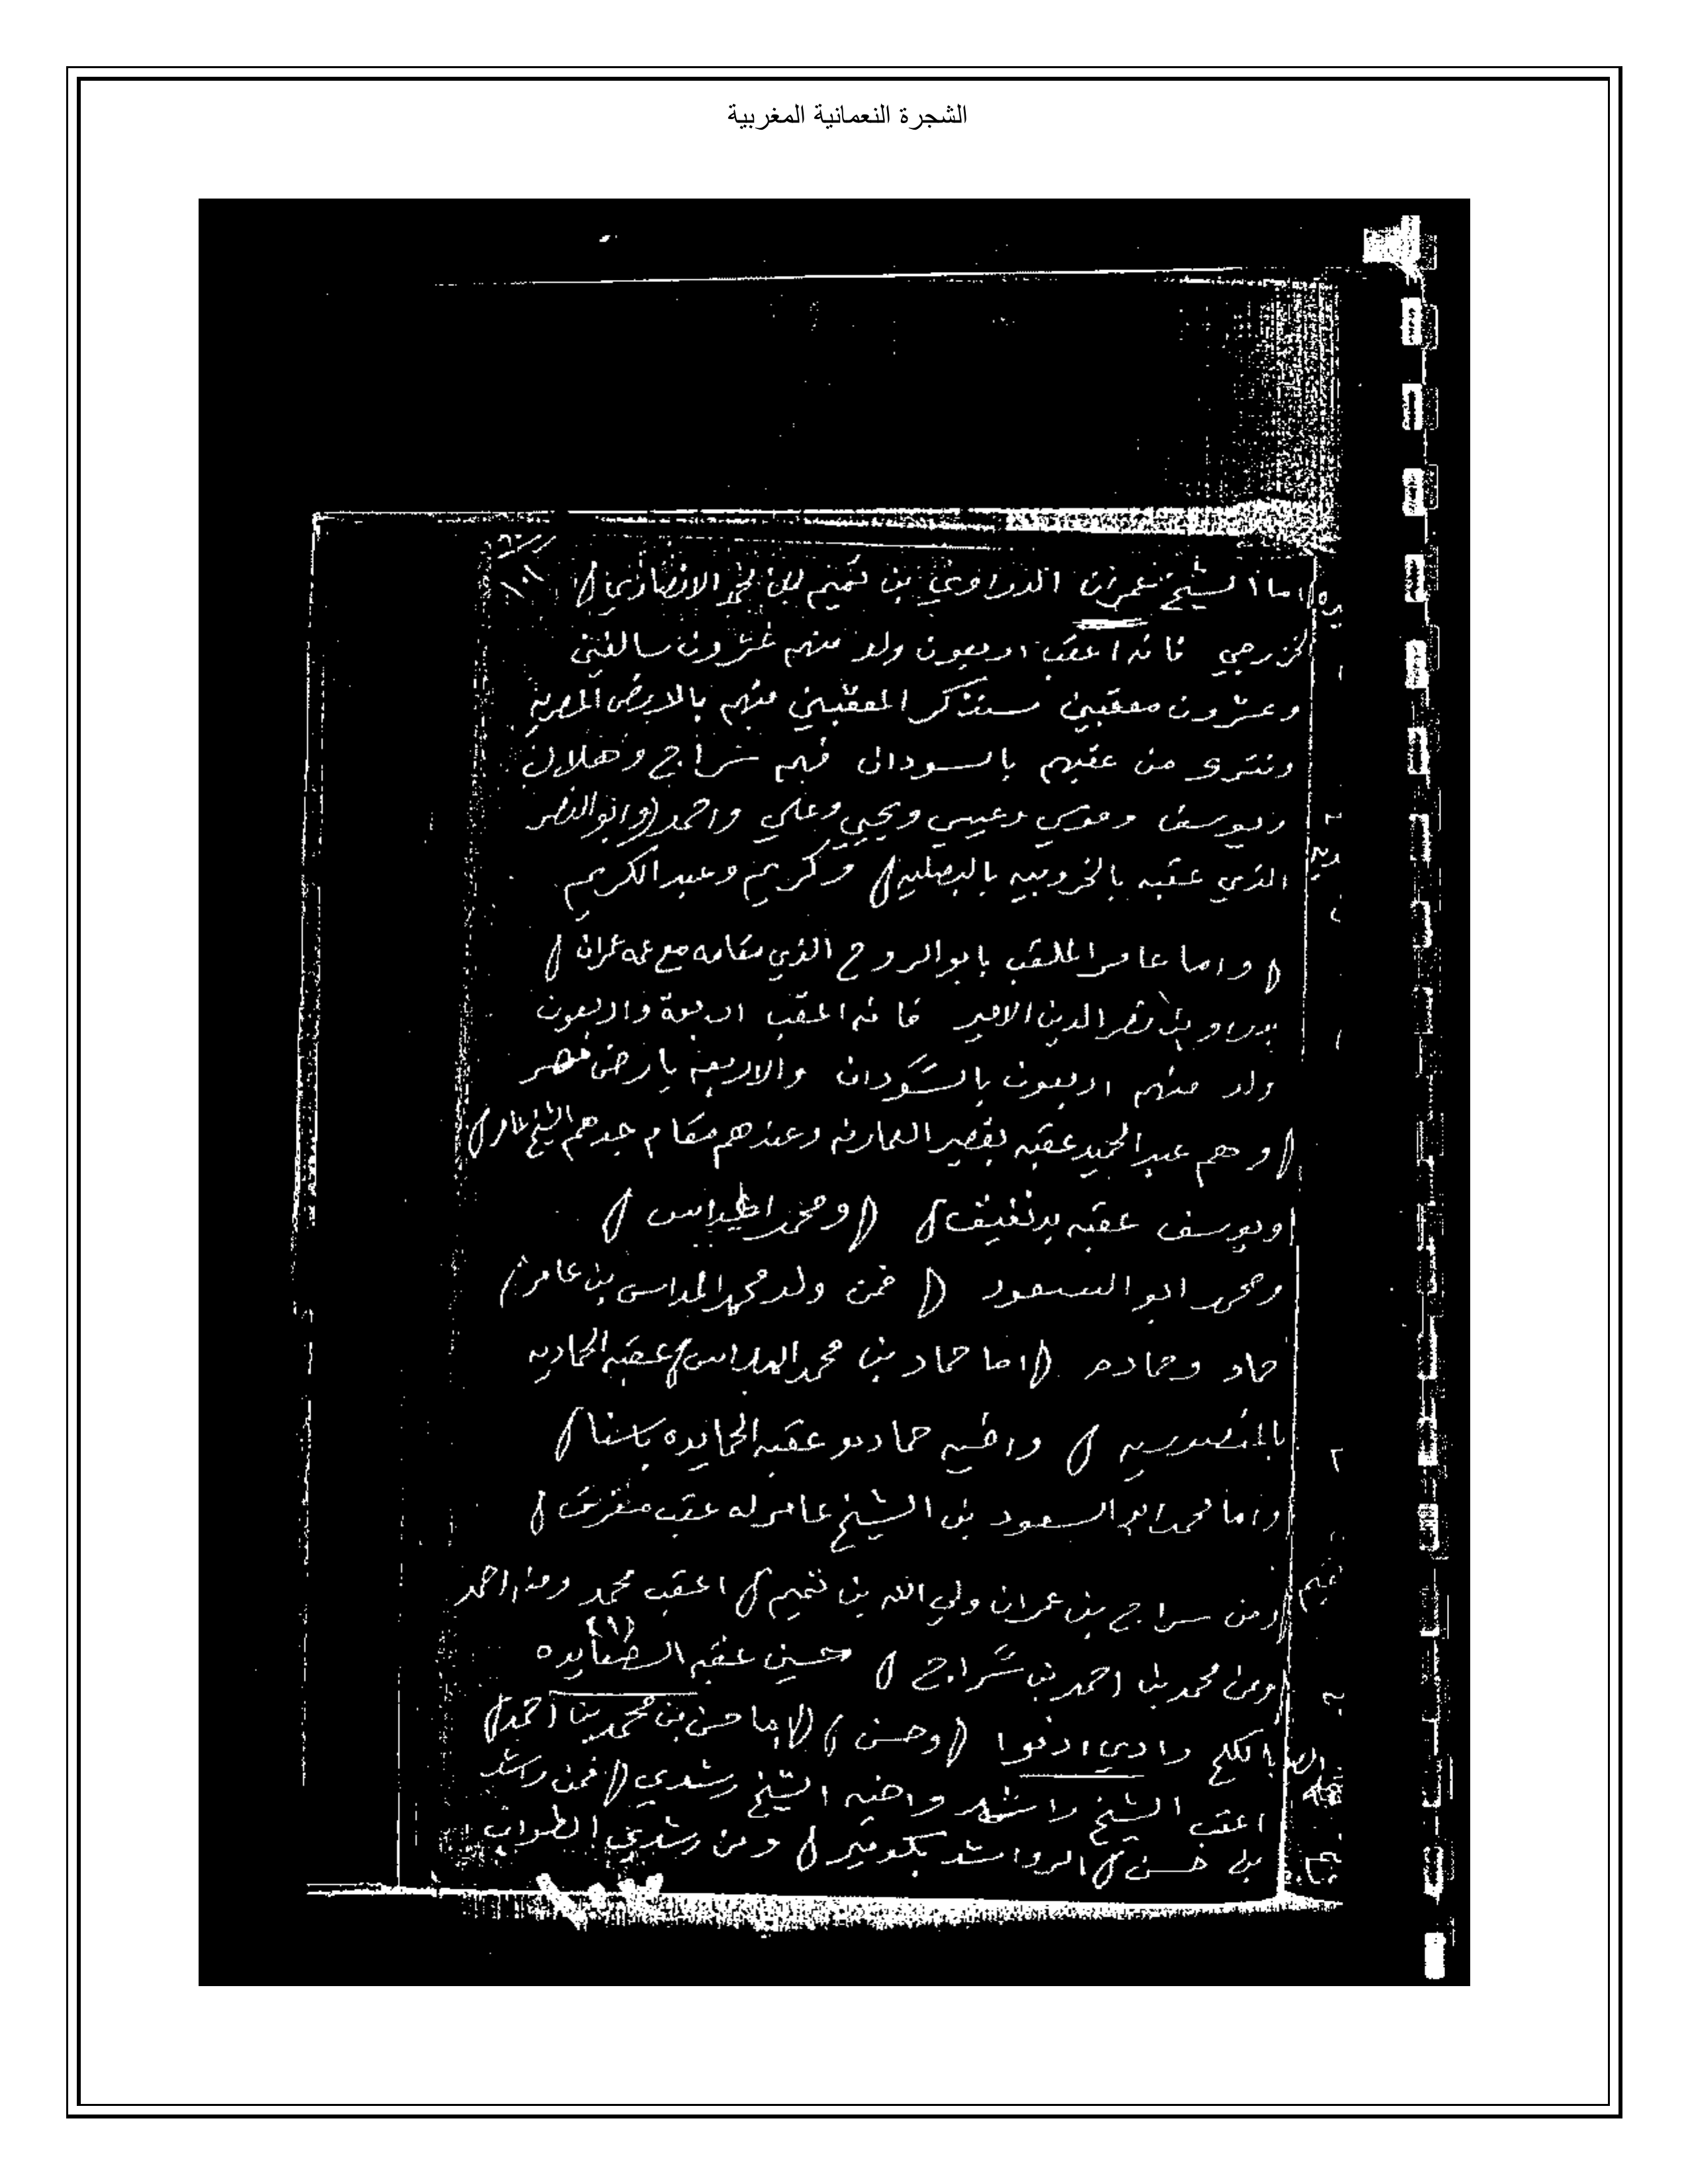 الشجرة النعمانية المغربية
اما الشيخ عمران الدراوي بن تميم بن محمد الانصاري
لخزرجي فانه اعقب اربعون ولد منهم عشرون سالفين
وعشرون معقبين سنذكر المعقبين منهم بالارض المصريه
ونترك من عقبهم بالسودان فهم سراج وهلال
ويوسف وموسي وعيسي ويحيي وعلي واحمد (وابوالنصر
الذي عقبه بالخروبيه بالبصليه) وكريم وعبد الكريم
(واما عامر الملقب بابو الروح الذي مقامه مع عمه عمران)
بدراو بن نصر الدين الامير فانه اعقب اربعة واربعون
ولد منهم اربعون بالسودان والاربعه بارض مصر
(وهم عبد الحميد عقبه بقصير العمارنه وعندهم مقام جدهم الشيخ عامر)
ويوسف عقبه (ومحمد
ومحمد ابو السعود (فمن ولد محمد المداس بن عامر)
حماد وحمادي (اما حماد بن محمد المداس) عقبه الحماديه
بالمنصوريه) واخيه حمادي عقبه الحمايده باسنا)
واما محمد ابو السعود بن الشيخ عامر له عقب متفرق)
ومن سراج بن عمران ولي الله بن تميم) اعقب محمد ومنه احمد
ومن محمد بن احمد بن سراج) حسين عقبه الصعايده (١)
بالكلح وادي ادفوا (وحسن) (اما حسن بن محمد بن احمد)
اعقب الشيخ راشد واخيه الشيخ رشدي (فمن راشد
بن حسن) الرواشد) ومن رشدي الطواب